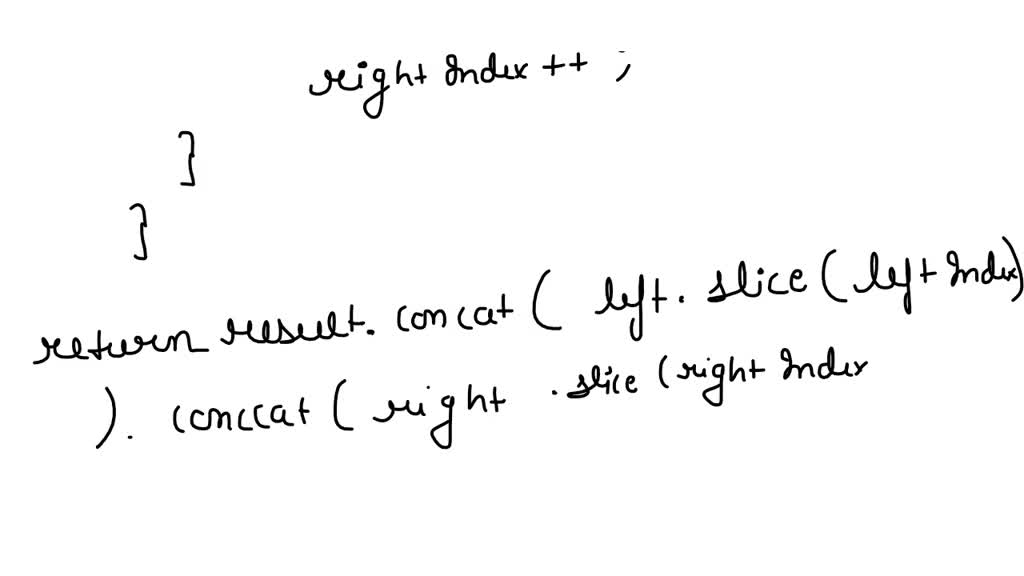 right Index ++ ;
}
}
return result. concat ( left. slice ( left Index )
). conccat ( right . slice ( right Index